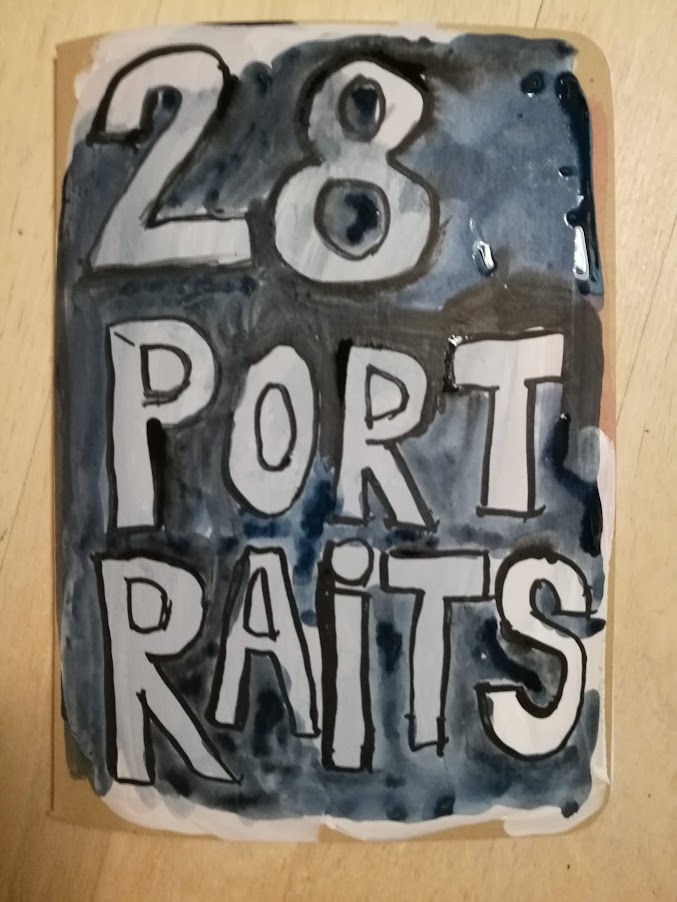 28
PORT
RAiTS